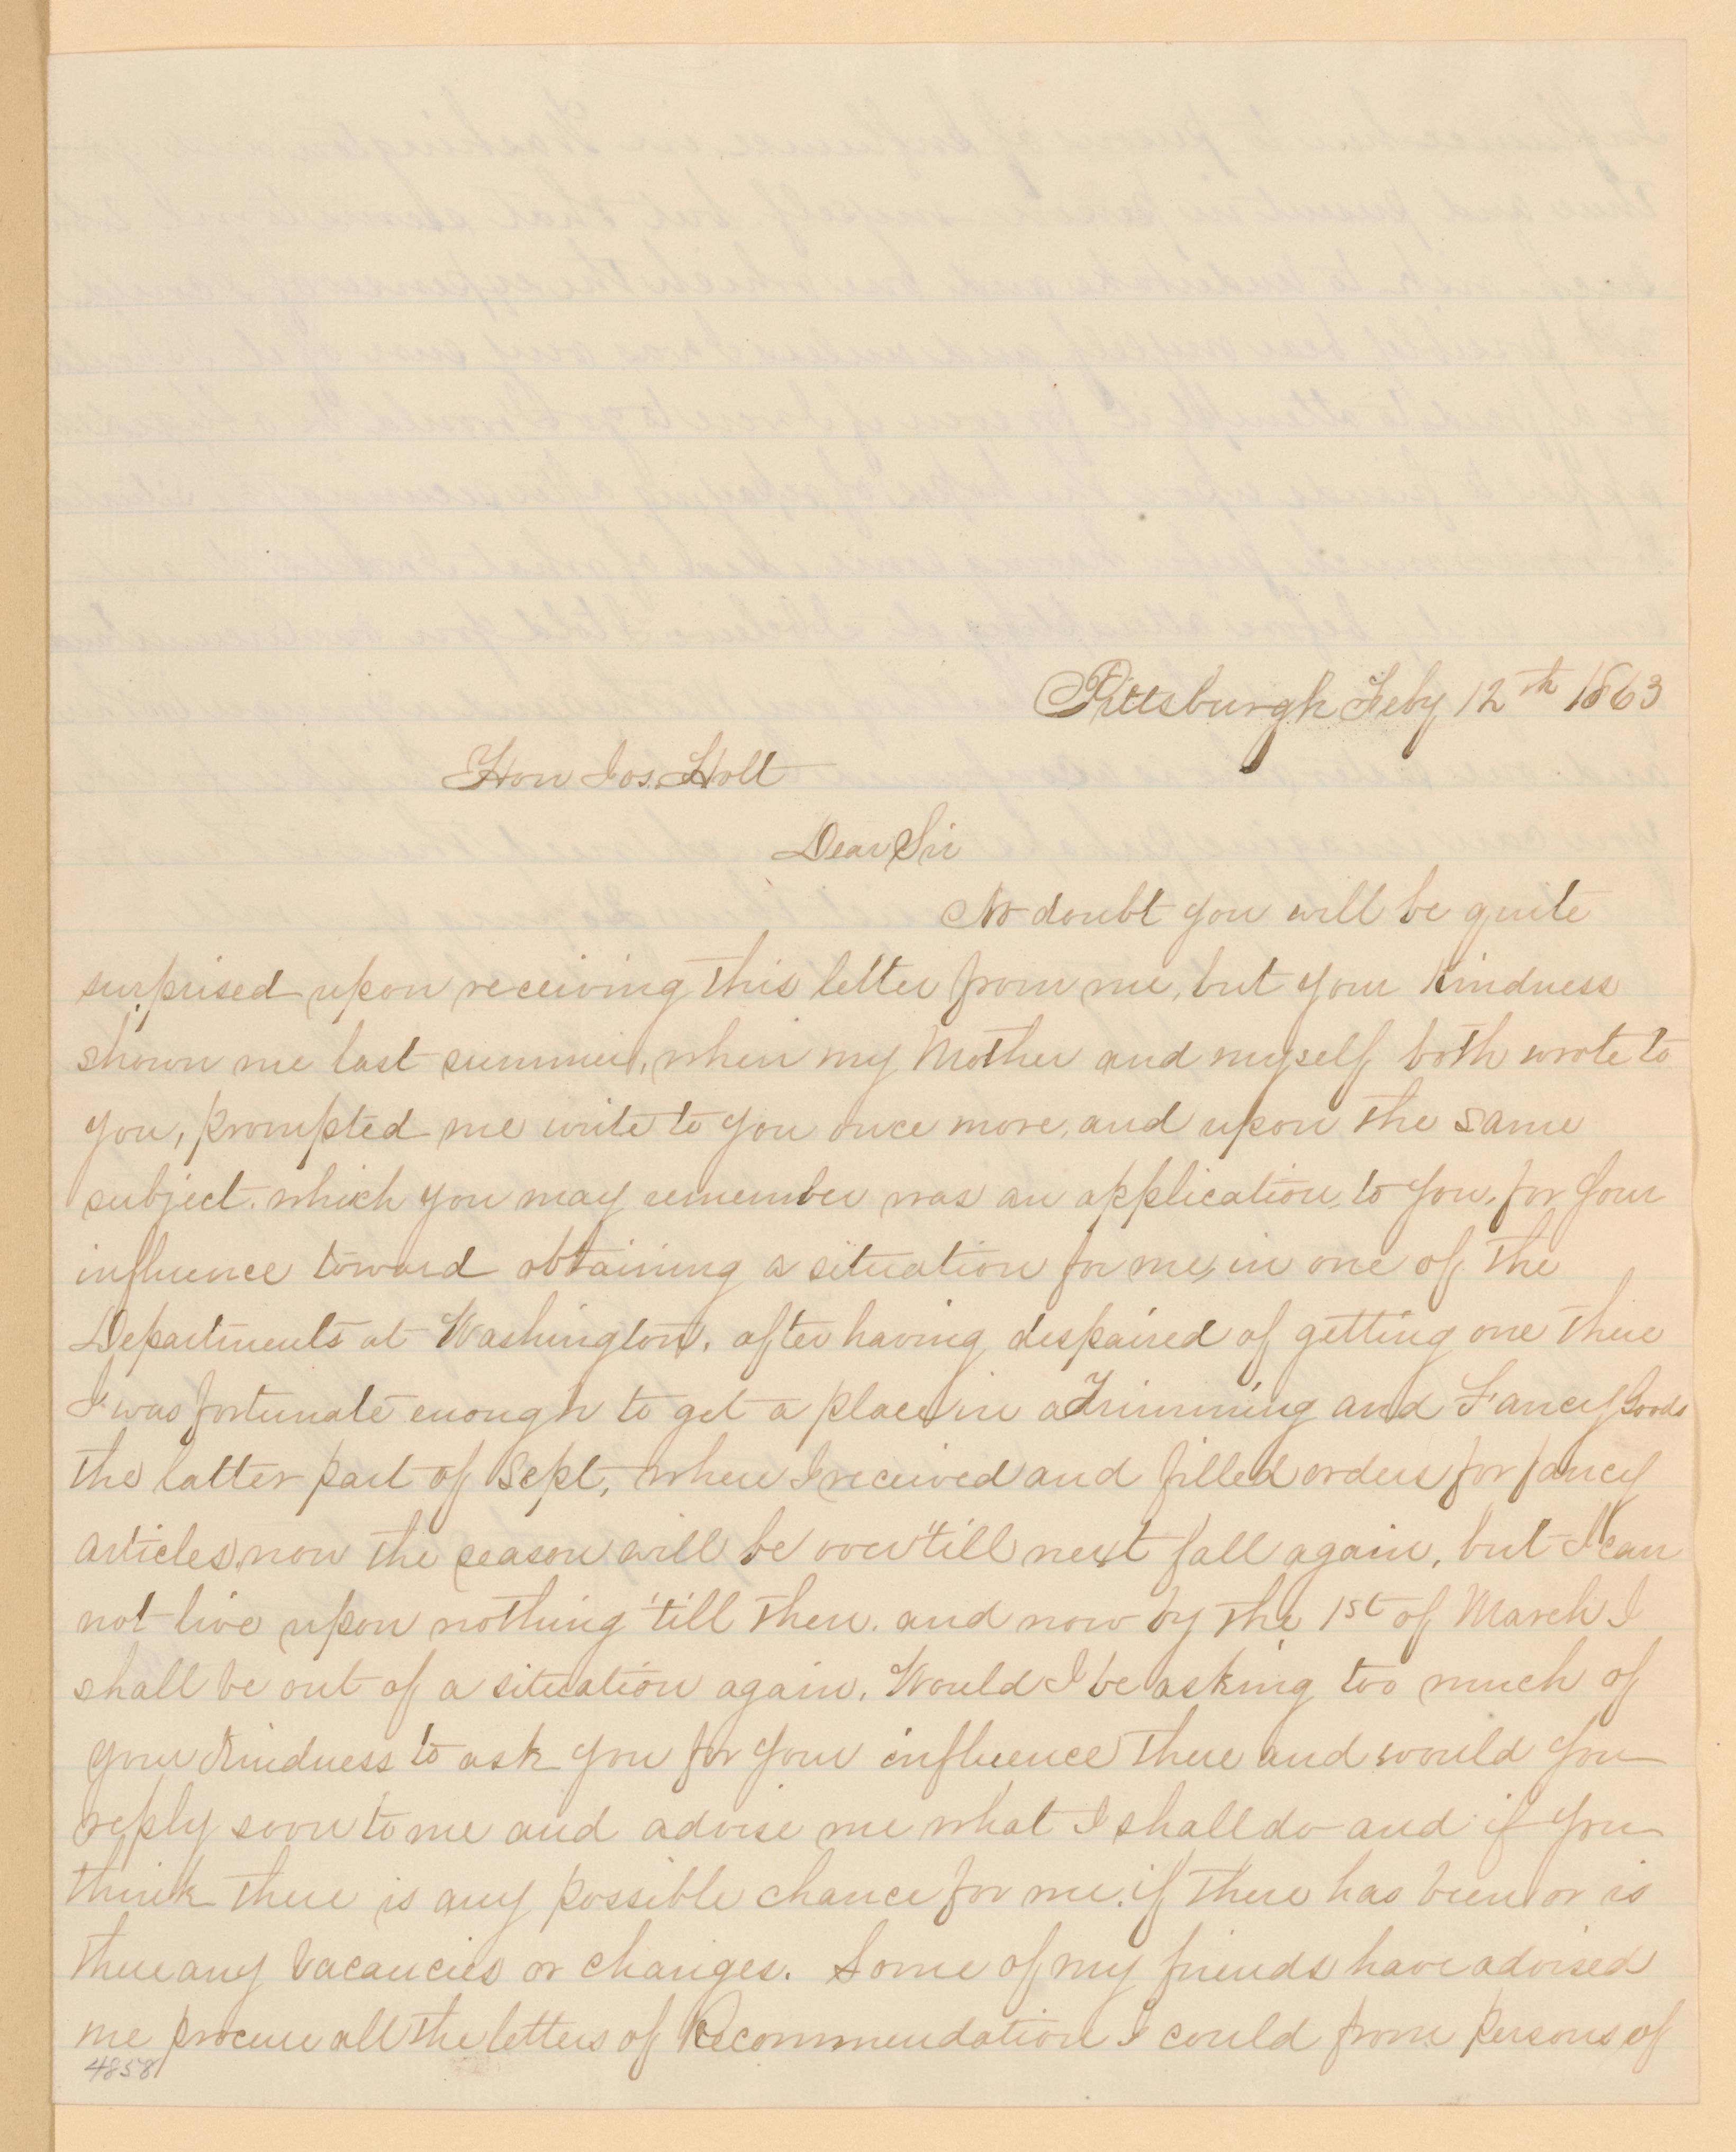 Pittsburgh Feby 12th 1863
Hon Jos. Holt
Dear Sir
No doubt you will be quite
surprised upon receiving this letter from me, but your kindness
shown me last summer, when my Mother and myself both wrote to
you, prompted me write to you once more, and upon the same
subject. which you may remember was an application, to you, for your
influence toward obtaining a situation for me, in one of the
Departments at Washington. after having despaired of getting one there
I was fortunate enough to get a place in a Trimming and Fancy Goods
the latter part of Sept, where I received and filled orders for fancy
articles, now the season will be over 'till next fall again, but I can
not live upon nothing 'till then. and now by the 1st of March I
shall be out of a situation again. Would I be asking too much of
your kindness to ask you for your influence there and would you
reply soon to me and advise me what I shall do and if you
think there is any possible chance for me. if there has been or is
there any vacancies or changes. Some of my friends have advised
me procure all the letters of Recommendation I could from persons of
4858